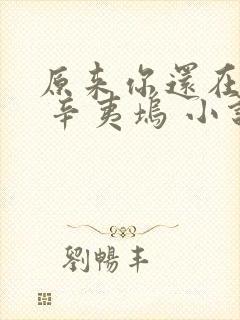 原来你還在
辛夷塢 小說
劉暢丰